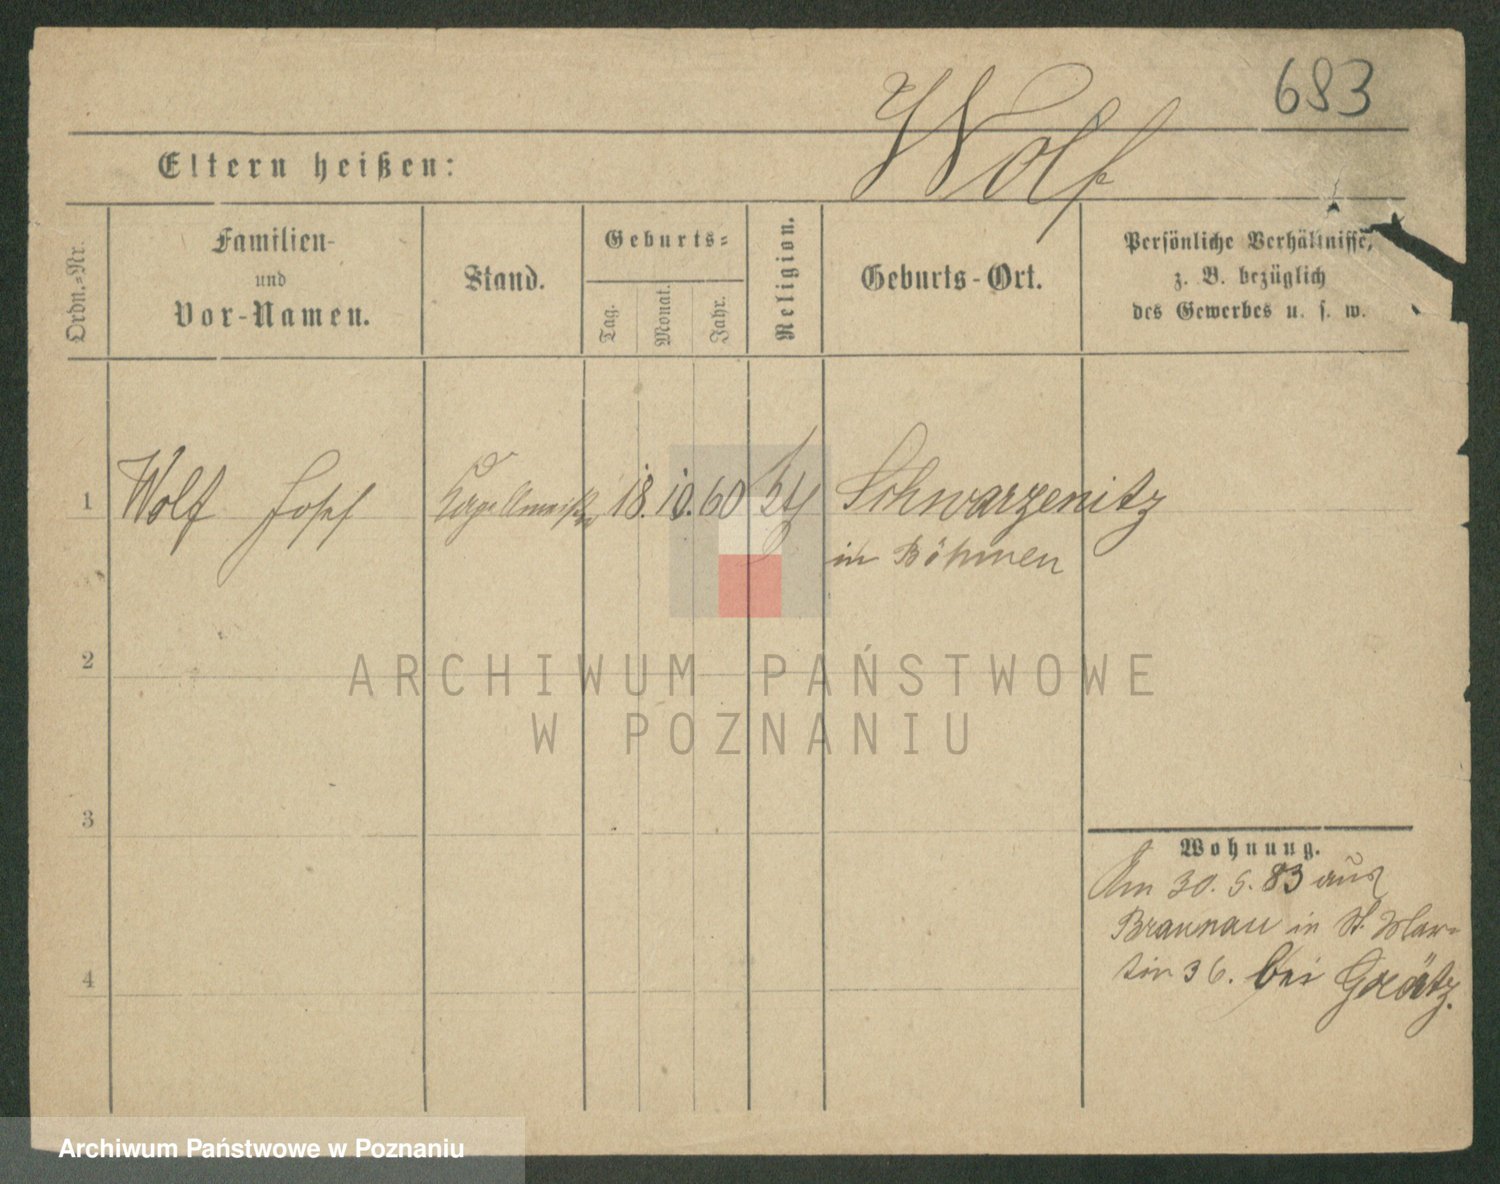 683
Wolf
Eltern heißen:
Ordn.-Nr.
Familien-
und
Vor-Namen.
Stand.
Geburts-
Tag.
Monat.
Jahr.
Religion.
Geburts-Ort.
Persönliche Verhältnisse,
z. B. bezüglich
des Gewerbes u. s. w.
1 Wolf Josef Kapellmeister 18. 10. 60 Schwarzenitz
in Böhmen
2
3
4
Wohnung.
Am 30. 5. 83 aus
Braunau in St. Mar-
tin 36. bei Grätz.
ARCHIWUM PAŃSTWOWE
W POZNANIU
Archiwum Państwowe w Poznaniu